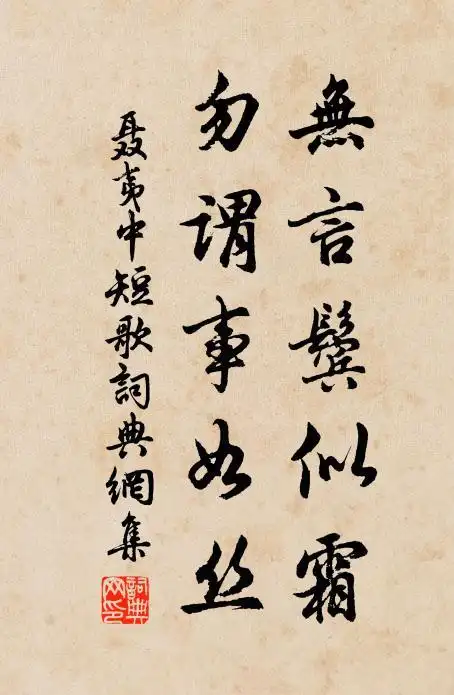 無言鬢似霜
勿謂事如丝
聂夷中短歌詞典網集
詞典
网印